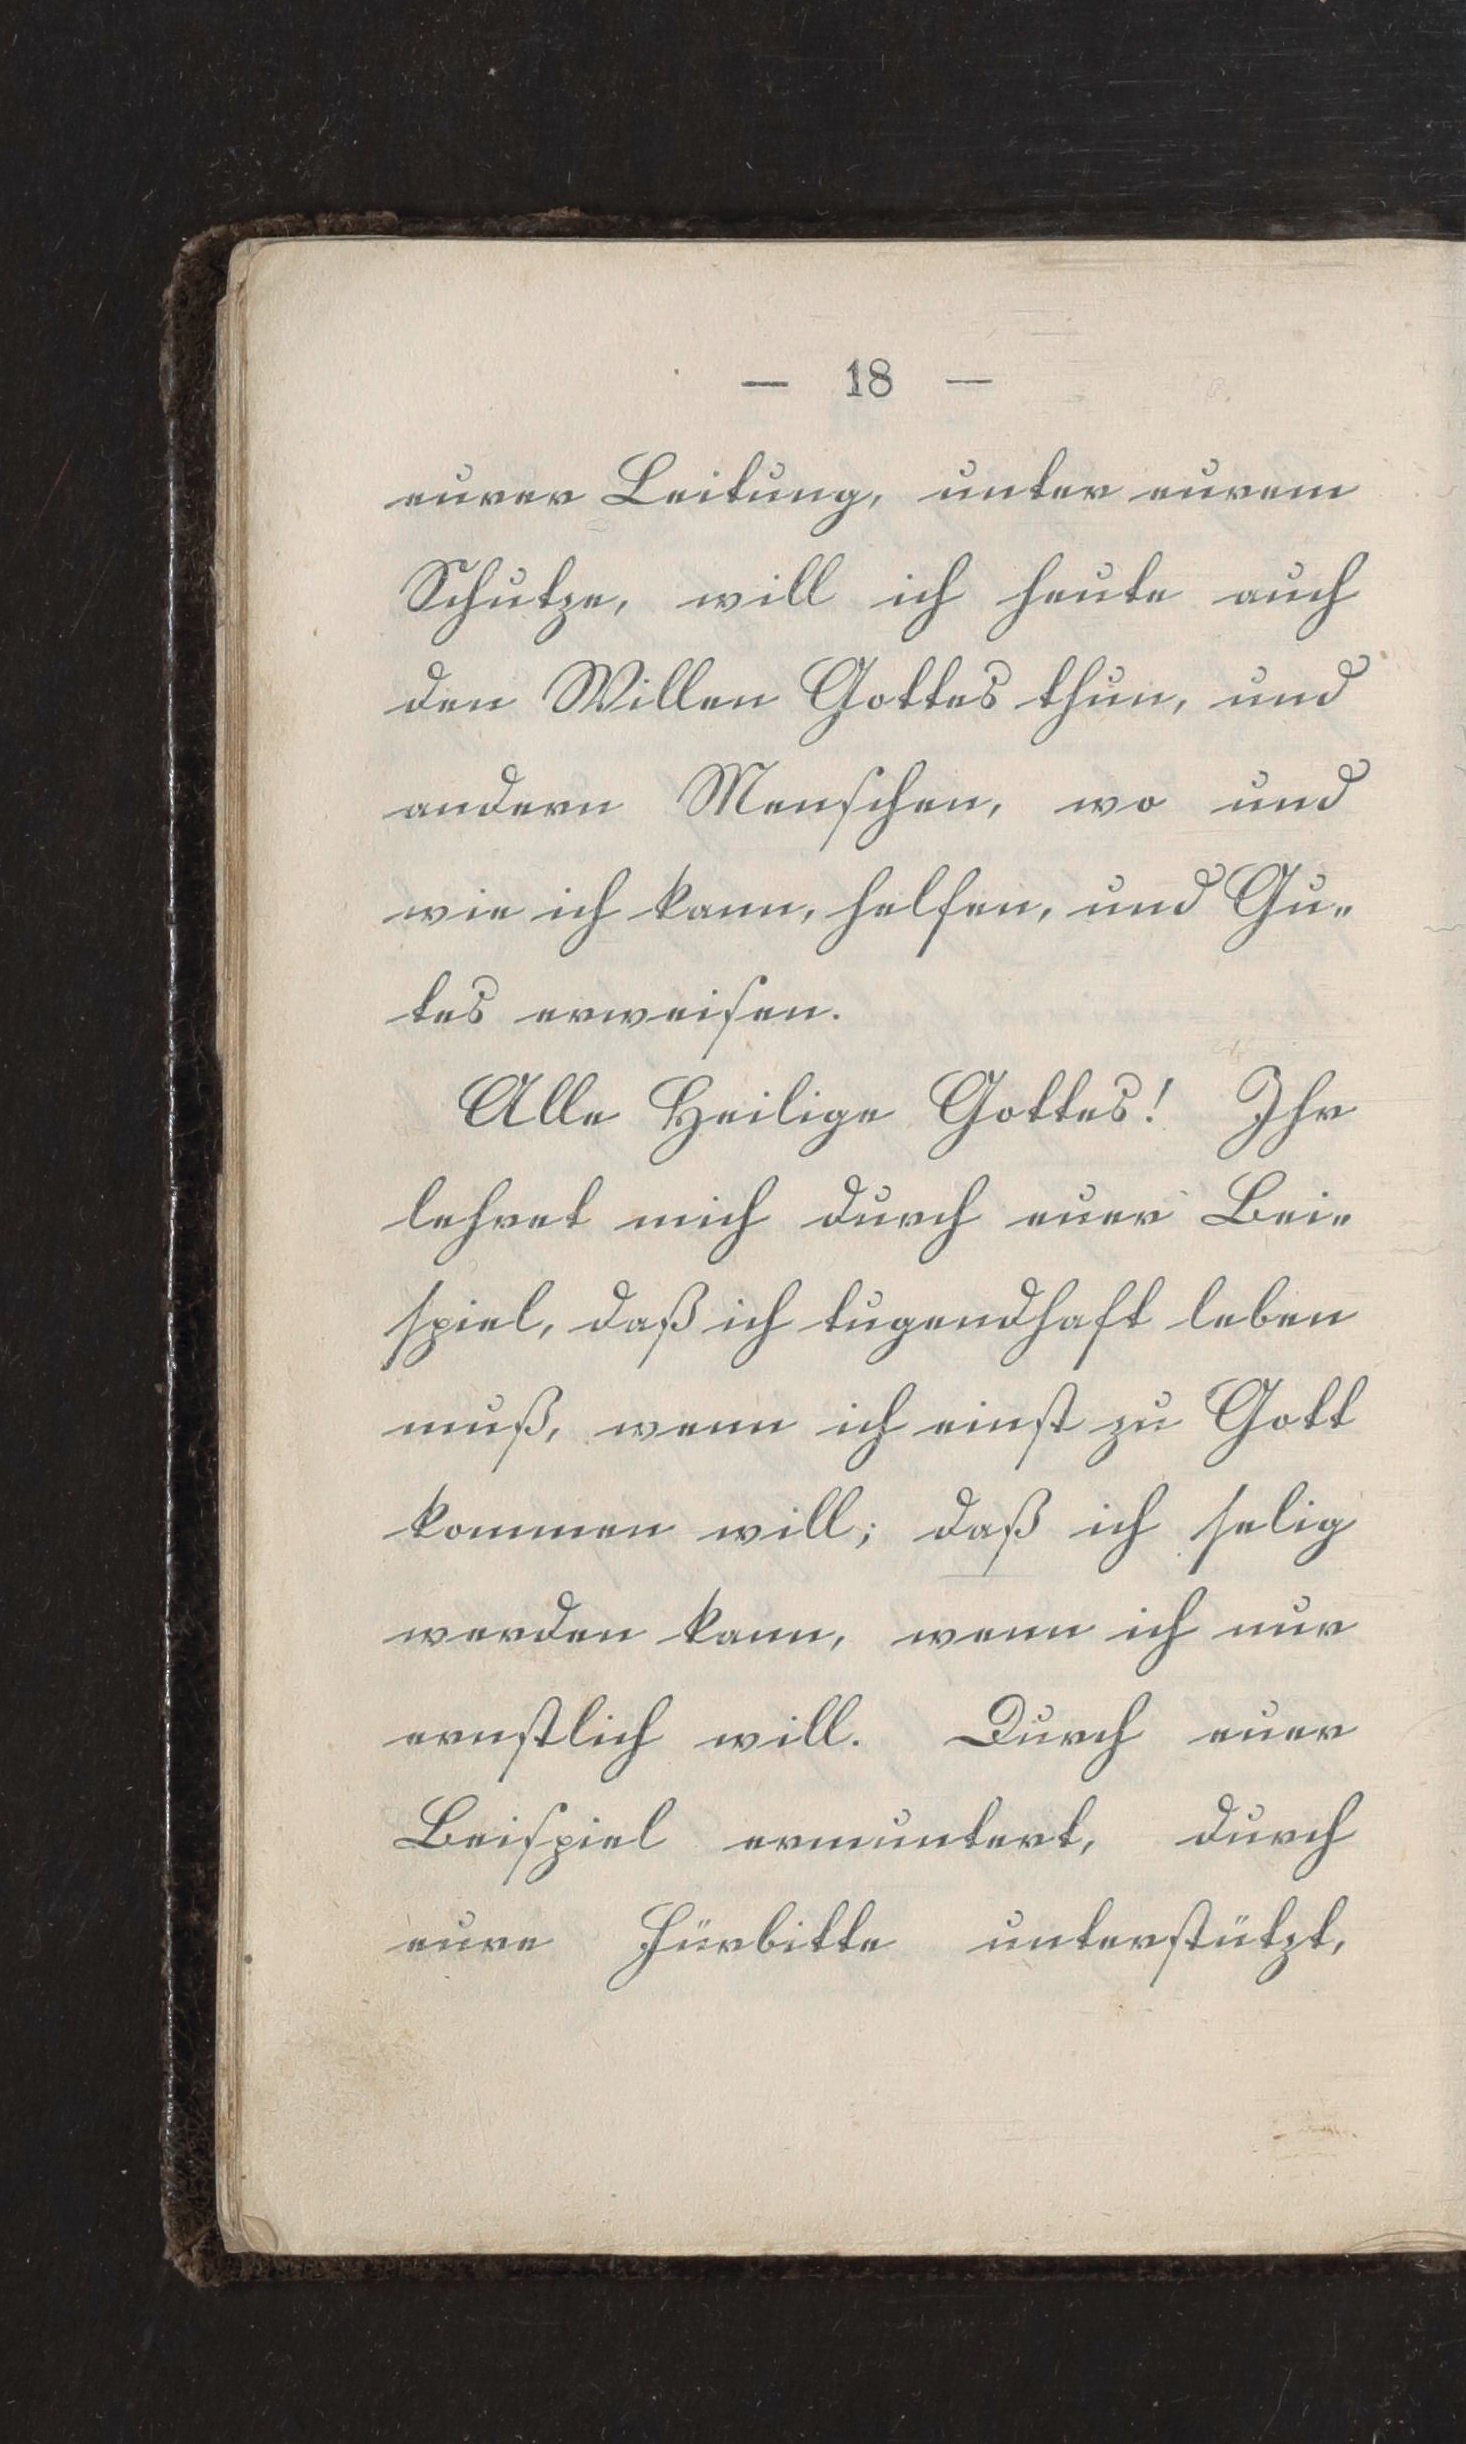 — 18 —
eurer Leitung, unter eurem
Schutze, will ich heute auch
den Willen Gottes thun, und
andern Menschen, wo und
wie ich kann, helfen, und Gu-
tes erweisen.
Alle Heilige Gottes! Ihr
lehret mich durch euer Bei-
spiel, daß ich tugendhaft leben
muß, wenn ich einst zu Gott
kommen will; daß ich selig
werden kann, wenn ich nur
ernstlich will. Durch euer
Beispiel ermuntert, durch
eure Fürbitte unterstützt,